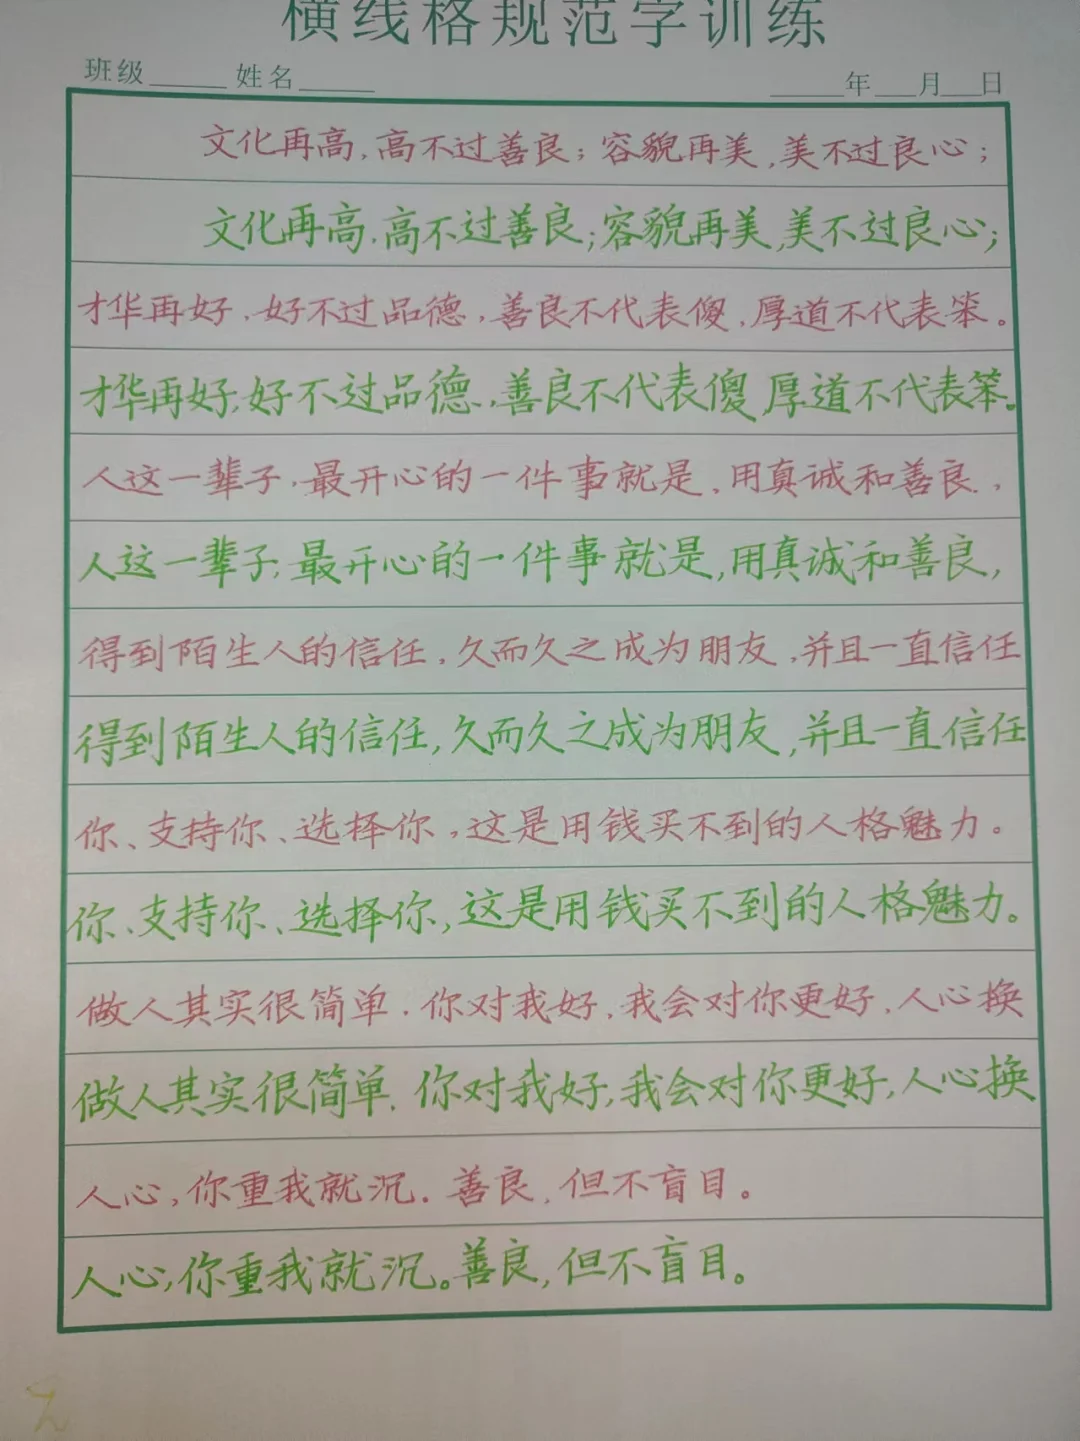 横线格规范字训练
班级____ 姓名____ ____年__月__日
文化再高，高不过善良；容貌再美，美不过良心；
文化再高，高不过善良；容貌再美，美不过良心；
才华再好，好不过品德，善良不代表傻，厚道不代表笨。
才华再好，好不过品德，善良不代表傻，厚道不代表笨。
人这一辈子，最开心的一件事就是，用真诚和善良，
人这一辈子，最开心的一件事就是，用真诚和善良，
得到陌生人的信任，久而久之成为朋友，并且一直信任
得到陌生人的信任，久而久之成为朋友，并且一直信任
你、支持你、选择你，这是用钱买不到的人格魅力。
你、支持你、选择你，这是用钱买不到的人格魅力。
做人其实很简单，你对我好，我会对你更好，人心换
做人其实很简单，你对我好，我会对你更好，人心换
人心，你重我就沉。善良，但不盲目。
人心，你重我就沉。善良，但不盲目。